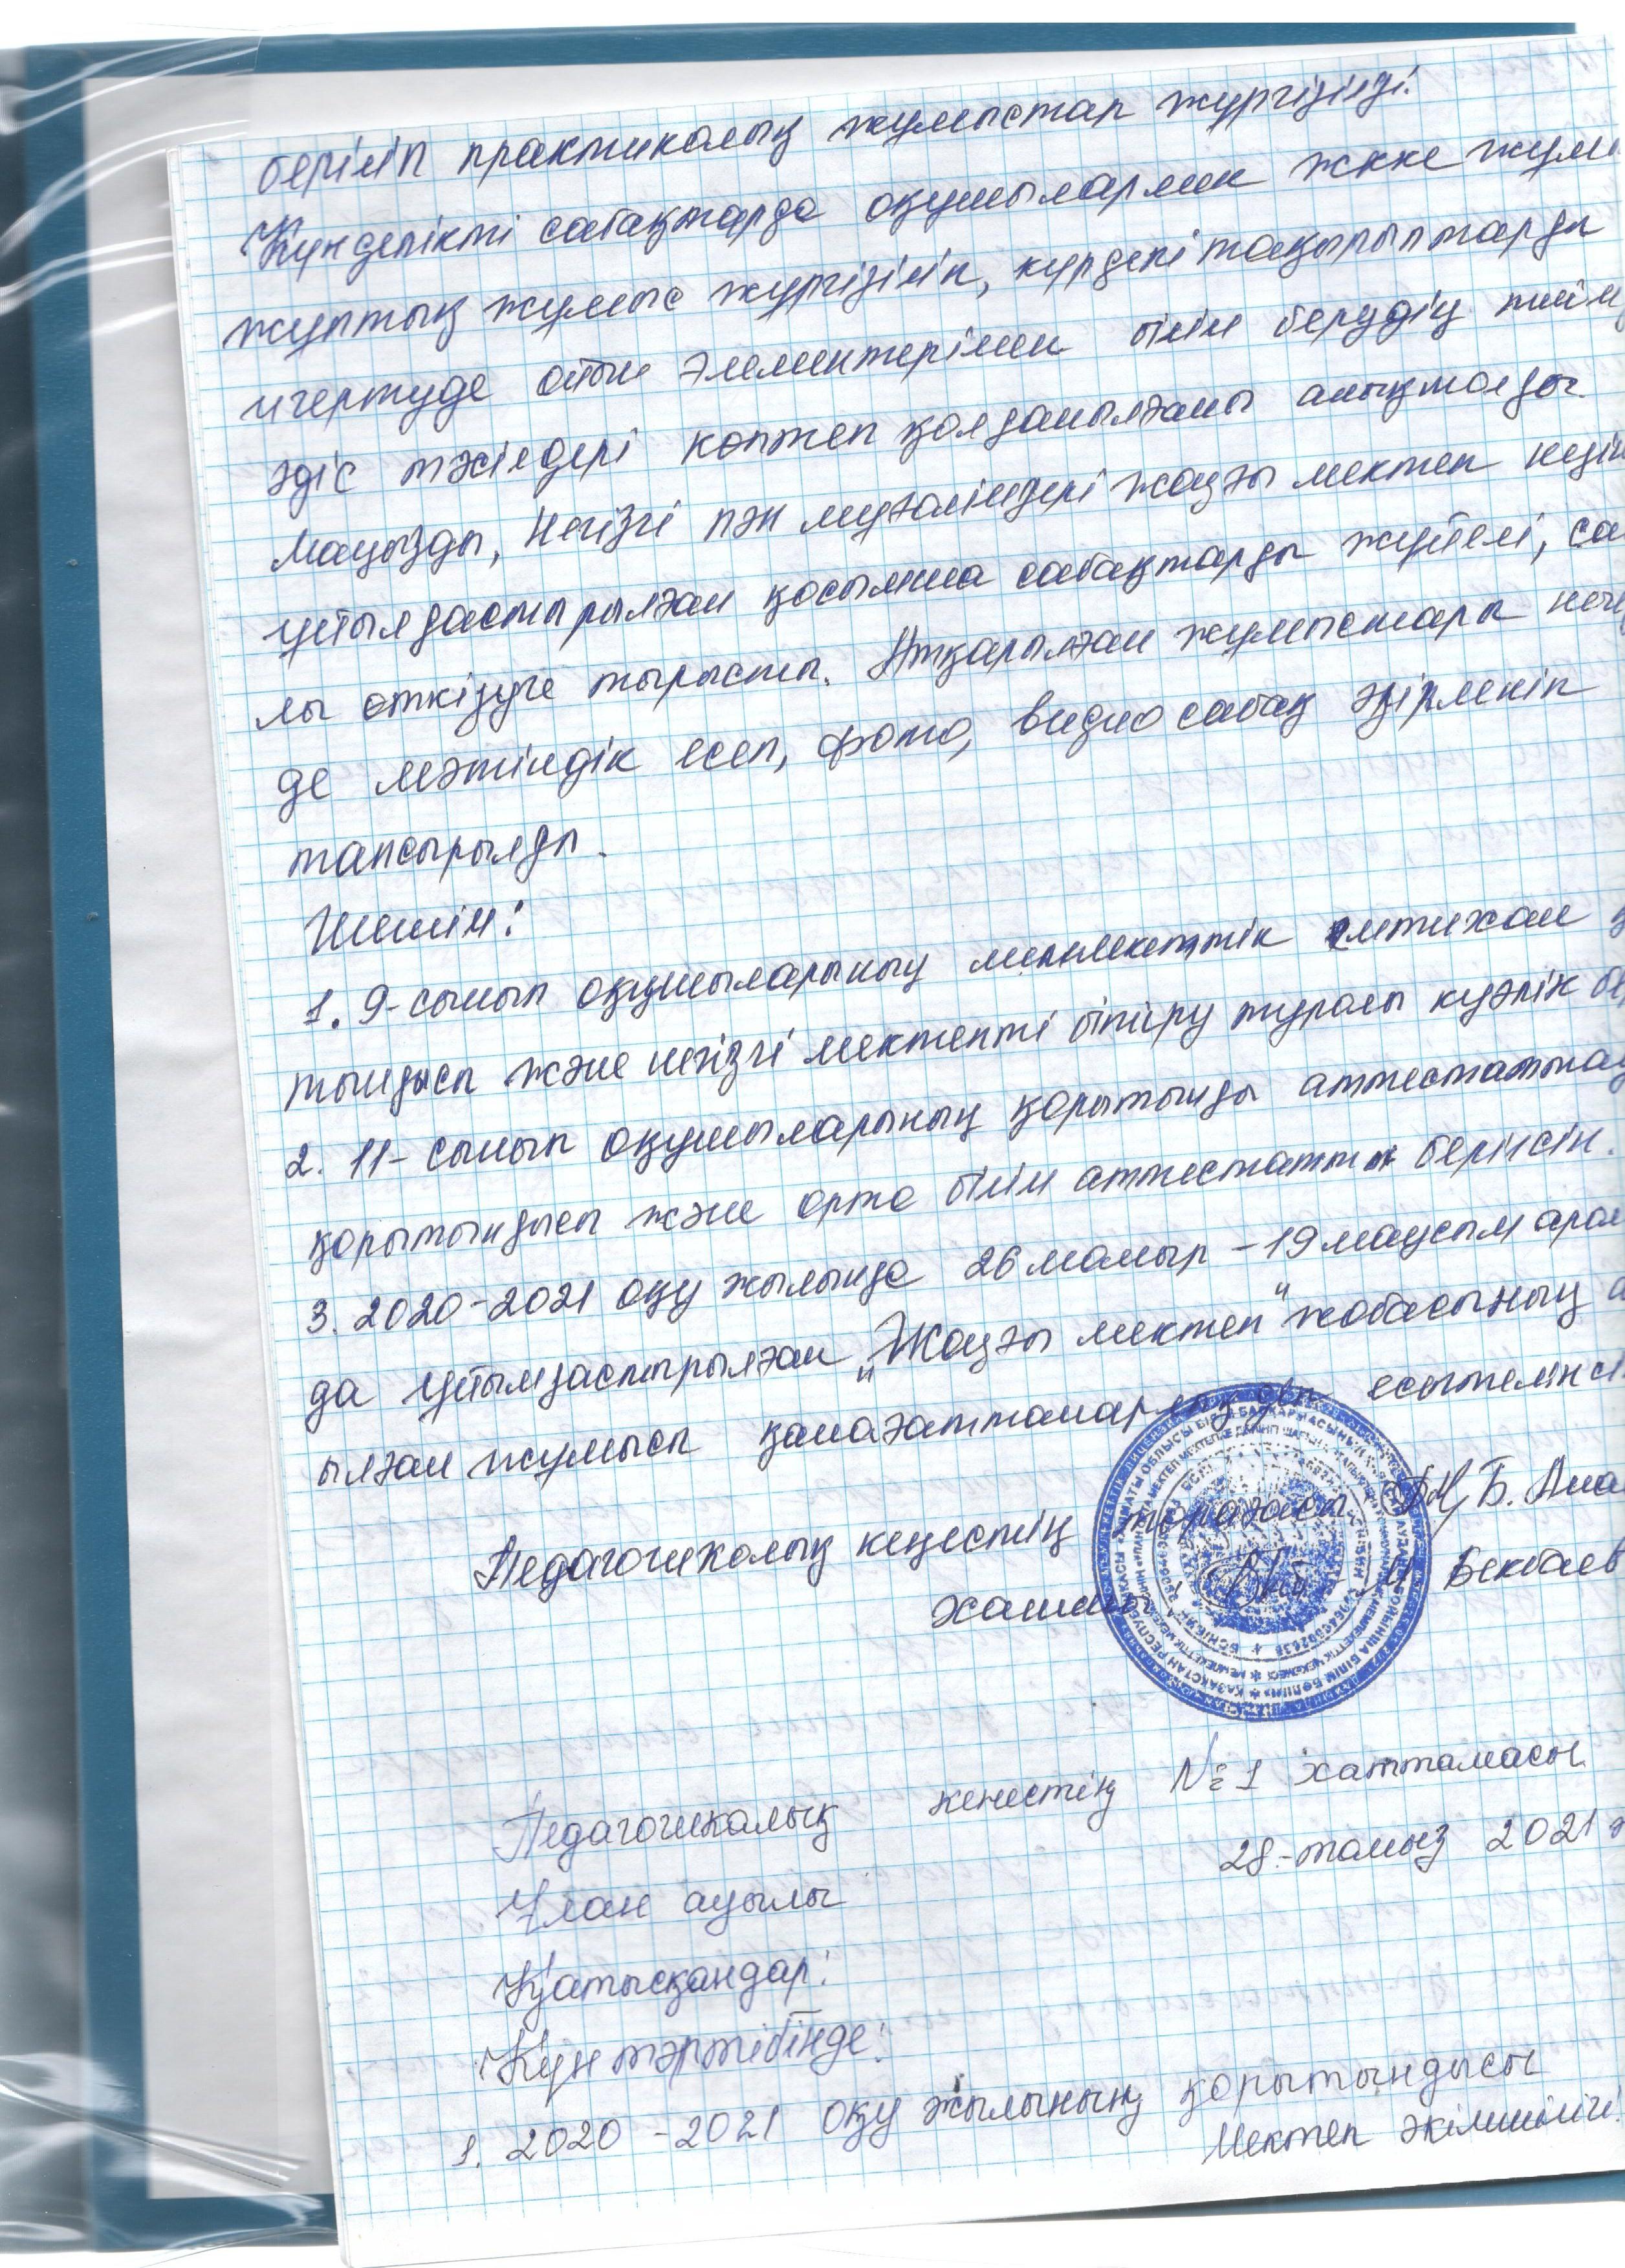 беріліп практикалық жұмыстар жүргізілді.
Күнделікті сабақтарда оқушылармен жеке жұмы
жұптық жұмыс жүргізіліп, күрделі тақырыптарды
игертуде ойын элементерімен білім берудің тиім
әдіс тәсілдері көптеп қолданылғаны анықталды.
Маңызды, негізгі пән мұғалімдері жазғы мектеп кезін
ұйымдастырылған қосымша сабақтарды жүйелі, са
лы өткізуге тырысты. Атқарылған жұмыстары негі
де мәтіндік есеп, фото, видио сабақ әзірленіп
тапсырылды.
Шешім:
1. 9-сынып оқушыларының мемлекеттік емтихан қ
тындысы және негізгі мектепті бітіру туралы куәлік бе
2. 11- сынып оқушыларының қорытынды аттестаттау
қорытындысы және орта білім аттестатты берілсін.
3. 2020-2021 оқу жылында 26 мамыр -19 маусым арал
да ұйымдастырылған „Жазғы мектеп" жобасының а
ылған жұмысы қанағаттанарлық деп есептелінсі
Педагогикалық кеңестің төрағасы: Б. Ама
хатшы: М Бекбаев
Педагогикалық кенестің №1 хаттамасы
28.-тамыз 2021 ж
Ұлан ауылы
Қатысқандар:
Күн тәртібінде:
1. 2020 -2021 оқу жылының қорытындысы
Мектеп әкімшілігі.